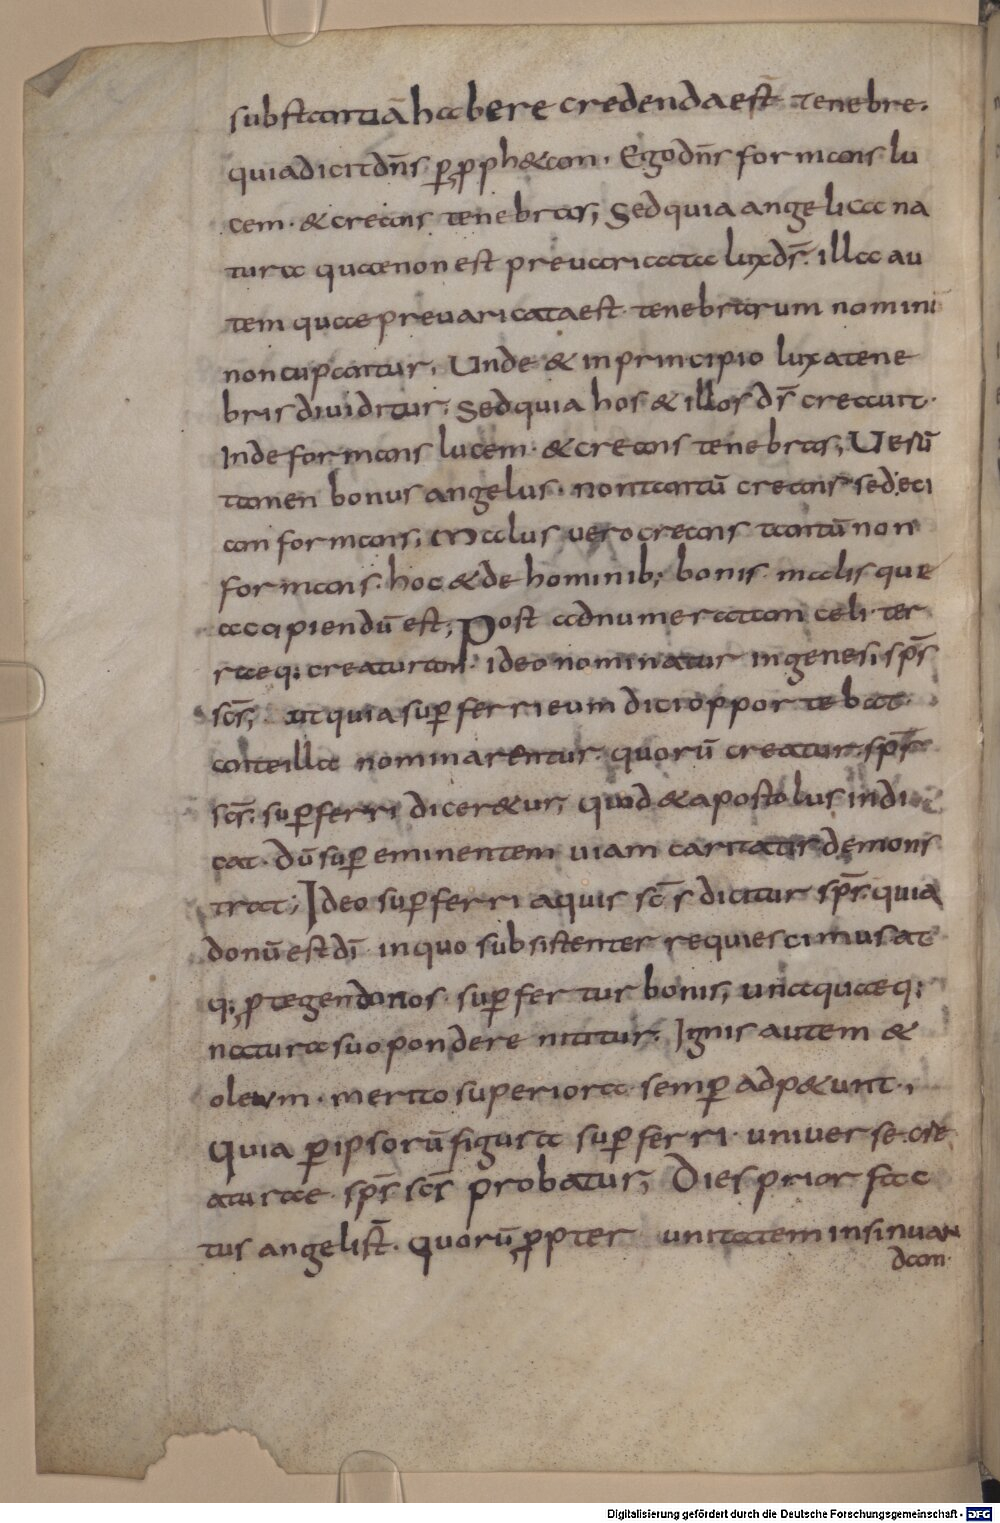 substantiā habere credenda est̄ tenebre.
quia dicit dn̄s ꝑ ꝓph&am. Ego dn̄s formans lu
cem. & creans tenebras; Sed quia angelica na
tura quae non est prevaricata lux dr̄. illa au
tem quae prevaricata est. tenebrarum nomini
noncupatur. Unde & in principio lux a tene
bris dividitur. Sed quia hos & illos ds̄ creavit.
Inde formans lucem. & creans tenebras; Uerū
tamen bonus angelus. non tantū creans sed eci
am formans; Malus vero creans tantū non
formans. hoc & de hominib; bonis malisque
accipiendū est; Post adnumeratam celi ter
raeq; creaturam. ideo nominatur in genesi sps̄
scs̄; ut quia suꝑferri eum dici opportebat.
ante illa nominarentur. quorū creatur sps̄
scs̄. suꝑferri dicer&ur; quod & apostolus indi
cat. dū suꝑeminentem viam caritatis demons
trat; Ideo suꝑferri aquis sc̄s dicitur sps̄. quia
donū est dī. in quo subsistenter requiescimus at
q; ꝓtegendo nos. suꝑfertur bonis; unaquaeq;
natura suo pondere nititur. Ignis autem &
oleum. merito superiora semꝑ adp&unt.
Quia ꝑ ipsorū figura suꝑferri. universe cre
aturae. sps̄ scs̄ probatur; Dies prior fac
tus angeli st̄. quorū ꝓpter unitatem insinuan
dam.
Digitalisierung gefördert durch die Deutsche Forschungsgemeinschaft - DFG